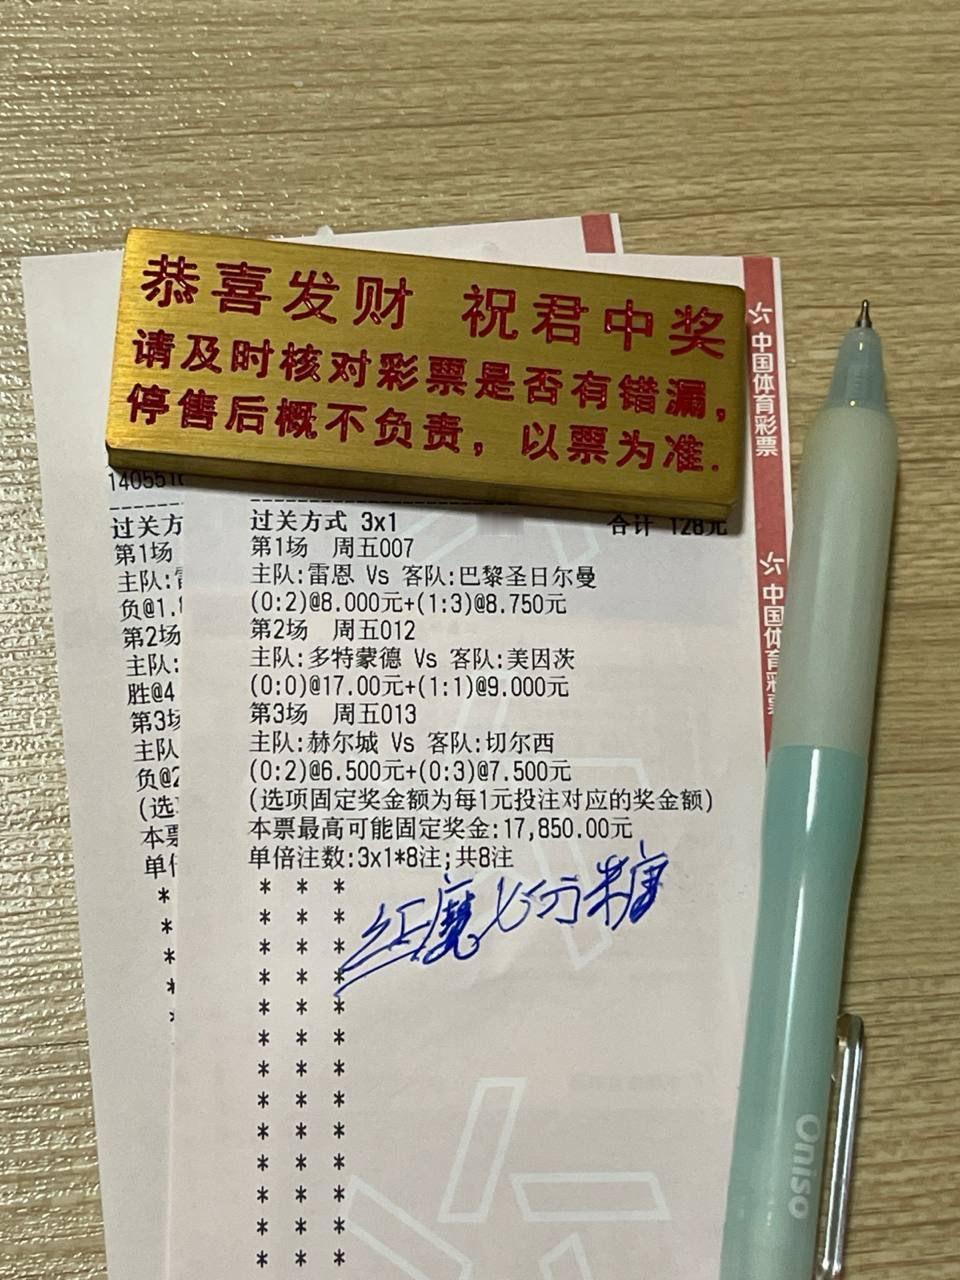 恭喜发财 祝君中奖
请及时核对彩票是否有错漏,
停售后概不负责, 以票为准.
中国体育彩票
中国体育彩票
140551
过关方
第1场
主队:
负@1.
第2场
主队:
胜@4
第3场
主队
负@2
(选
本票
单倍
*
*
*
*
过关方式 3x1 合计 128元
第1场 周五007
主队:雷恩 Vs 客队:巴黎圣日尔曼
(0:2)@8.000元+(1:3)@8.750元
第2场 周五012
主队:多特蒙德 Vs 客队:美因茨
(0:0)@17.00元+(1:1)@9.000元
第3场 周五013
主队:赫尔城 Vs 客队:切尔西
(0:2)@6.500元+(0:3)@7.500元
(选项固定奖金额为每1元投注对应的奖金额)
本票最高可能固定奖金:17,850.00元
单倍注数:3x1*8注;共8注
红魔七分糖
* * *
* * *
* * *
* * *
* * *
* * *
* * *
* * *
* * *
* * *
* * *
* * *
* * *
Oniso